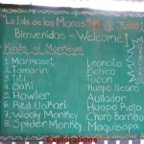 "La Isla de los Monos"
Bienvenidos - Welcome!
Kinds of Monkeys
1. Marmoset Leoncito
2. Tamarin Pichico
3. Titi Tocon
4. Saki Huapo Negro
5. Howler Aullador
6. Red Uakari Huapo Rojo
7. Wooly Monkey Choro Barrigudo
8. Spider Monkey Maquisapa
Explorations